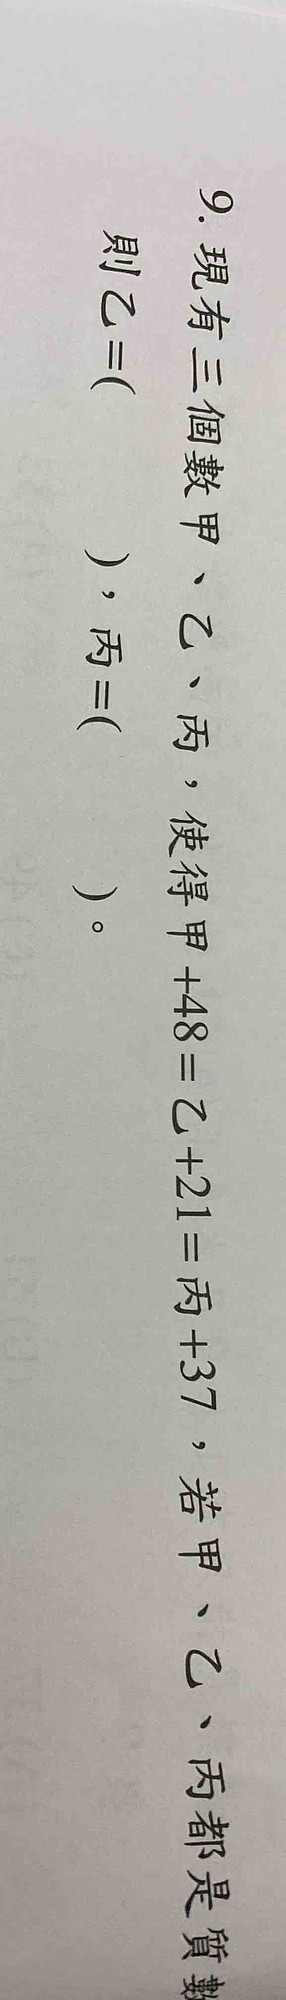 9. 現有三個數甲、乙、丙，使得甲+48=乙+21=丙+37，若甲、乙、丙都是質數
則乙=(　　)，丙=(　　)。